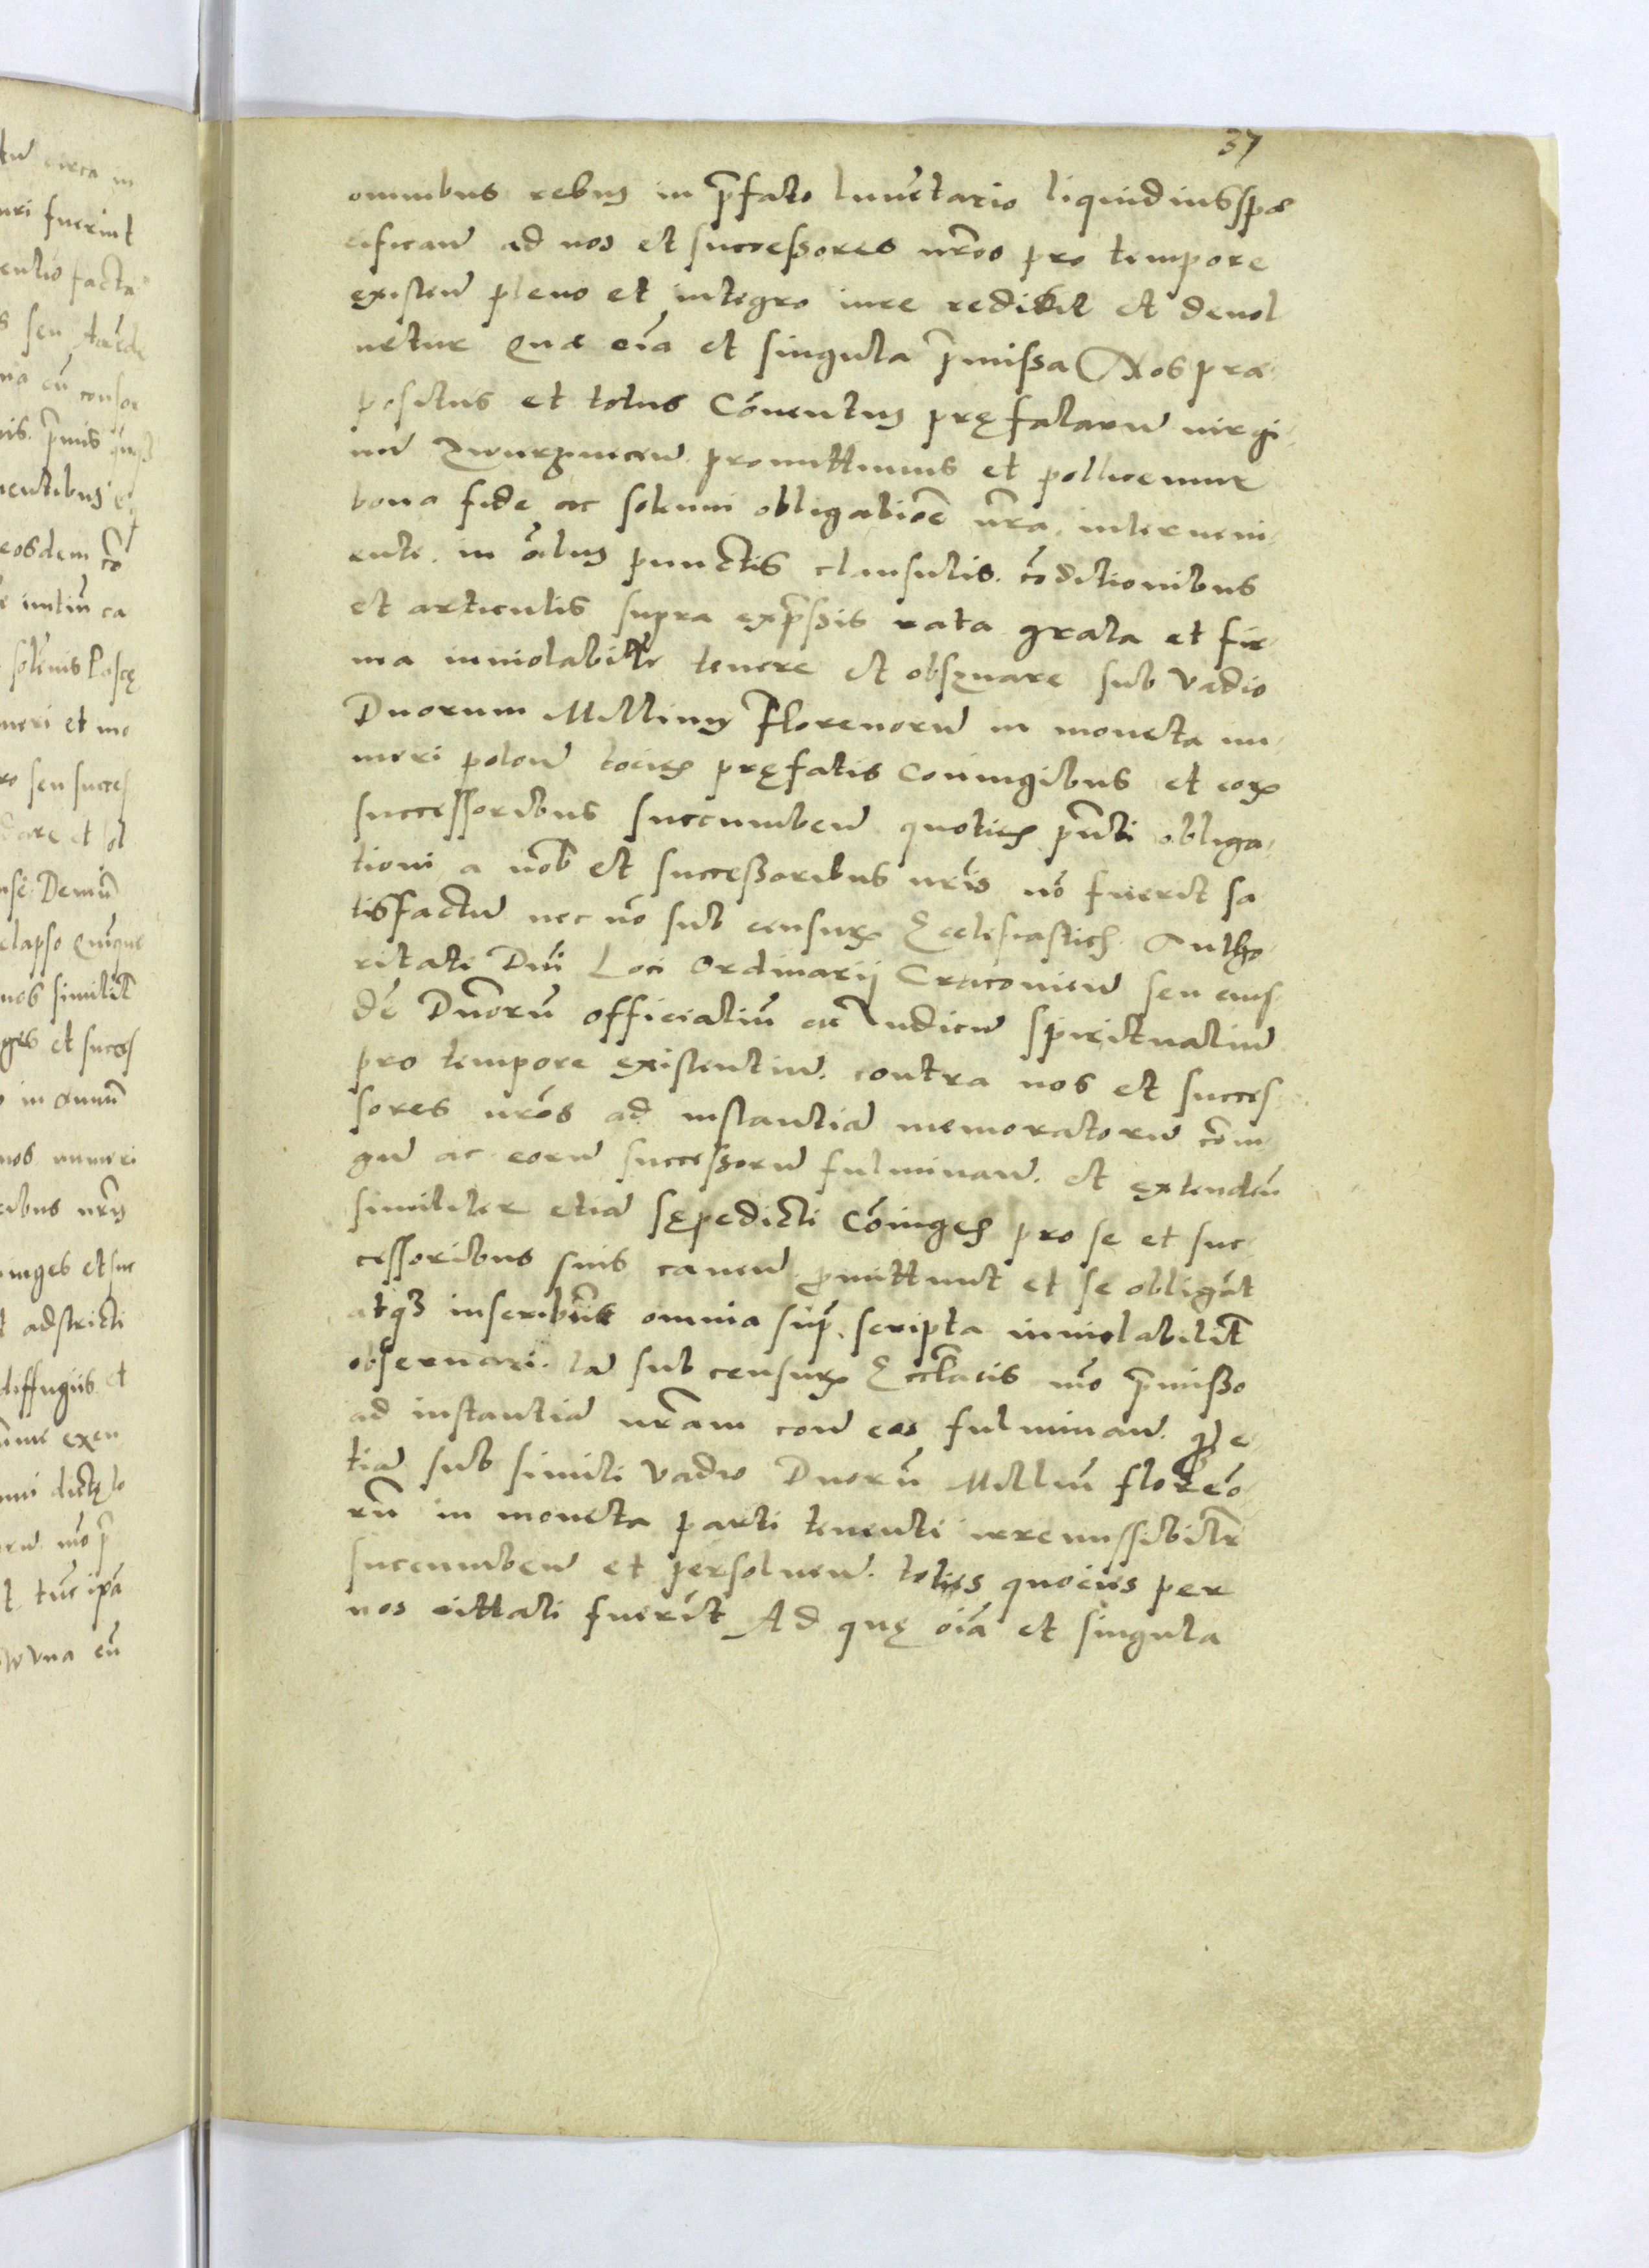 37
omnibus rebus in p̄fato Inuētario liquidius spæ
cificañ ad nos et successores nr̄os pro tempore
existeñ pleno et integro iure redibit et deuol
uetur Quæ oīa et singula p̄missa Nos præ
positus et totus Cōuentus pręfatarū uirgi
nū Zwierzinecеñ promittimus et pollicemur
bona fide ac solenni obligatiōe nr̄a interueni
ente. in oībus punctis clausulis. cōditionibus
et articulis supra exp̄ssis rata grata et fir
ma inuiolabilr̄ tenere et obseruare sub Vadio
Duorum Millium Florenorū in moneta nu
meri poloñ tocies pręfatis Coniugibus et eorꝝ
successoribus succumbeñ quoties pn̄ti obliga
tioni a nob̄ et successoribus nr̄is nō fuerit sa
tisfactū nec nō sub censurꝫ Ecclesiasticis Autho
ritate Dn̄i Loci Ordinarij Cracouieñ seu eius
dē Dn̄orū officialiū ac Iudicū spiritualiū
pro tempore existentiū. contra nos et succes
sores nr̄os ad instantiā memoratorū cōiu
gū ac eorū successorū fulminañ. et extendeñ
similiter etiā sępedicti Cōiuges pro se et suc
cessoribus suis caueñ p̄mittunt et se obligāt
atqꝫ inscribunt omnia sup̄. scripta inuiolabilit̄
obseruari. tā sub censurꝫ Eccl̄acis mō p̄misso
ad instantiā nr̄am coñ eos fulminañ. qꝫ e
tiā sub simili Vadio Duorū Milliū florēo
rū in moneta parti tenenti irremissibilr̄
succumbeñ et persolueñ. toties quocies per
nos cittati fuerīt Ad quę oīa et singula